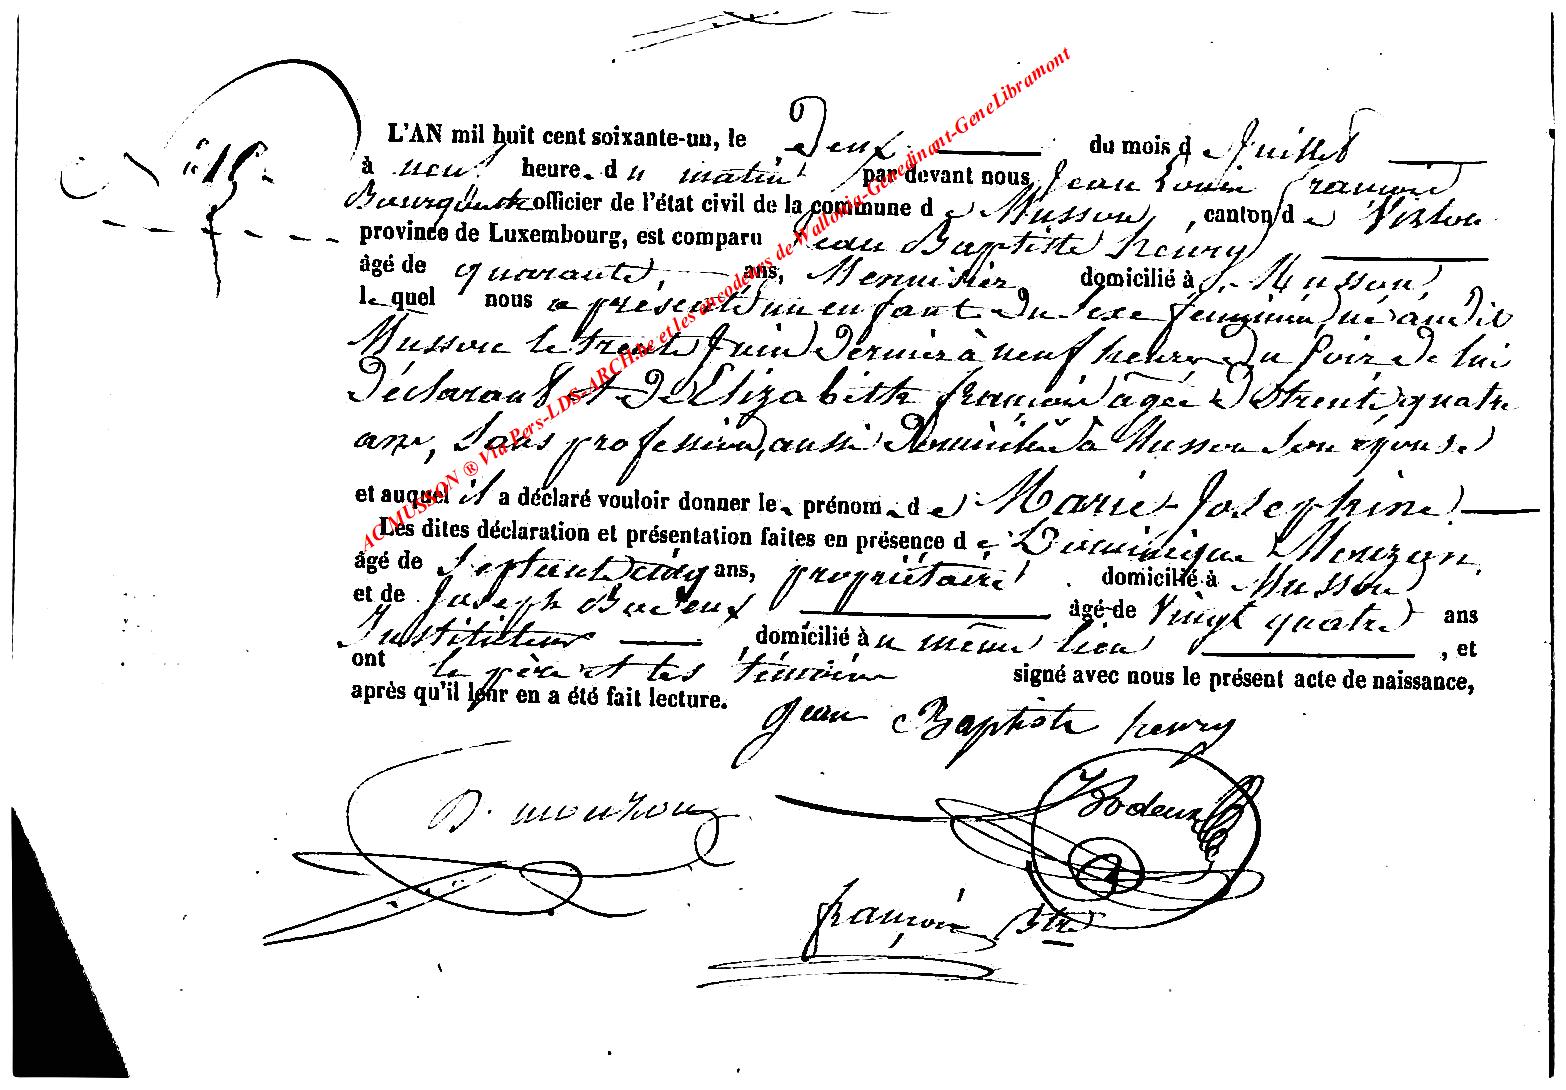 N° 19.
L'AN mil huit cent soixante-un, le Deux du mois de Juillet
à neuf heure du matin par devant nous Jean Louis François
officier de l'état civil de la commune de Musson, canton de Virton
province de Luxembourg, est comparu Jean Baptiste henry
âgé de quarante ans, Menuisier, domicilié à Musson
lequel nous a présenté un enfant du sexe féminin, né audit
Musson le trente Juin dernier à neuf heures du soir, de lui
Déclarant et de Elizabeth françois âgée de trente quatre
ans, sans profession, aussi domiciliée à Musson son épouse
et auquel il a déclaré vouloir donner le prénom de Marie-Josephine
Les dites déclaration et présentation faites en présence de Dominique Mouzon,
âgé de ans, propriétaire domicilié à Musson
et de Joseph âgé de Vingt quatre ans
Instituteur domicilié au même lieu , et
ont le père et les témoins signé avec nous le présent acte de naissance,
après qu'il leur en a été fait lecture.
Jean Baptiste henry
D. mouzon
françois Btre
ACMUSSON ® Via Pers-LDS-ARCH.be et les encodeurs de Wallonia-Genedinant-GeneLibramont